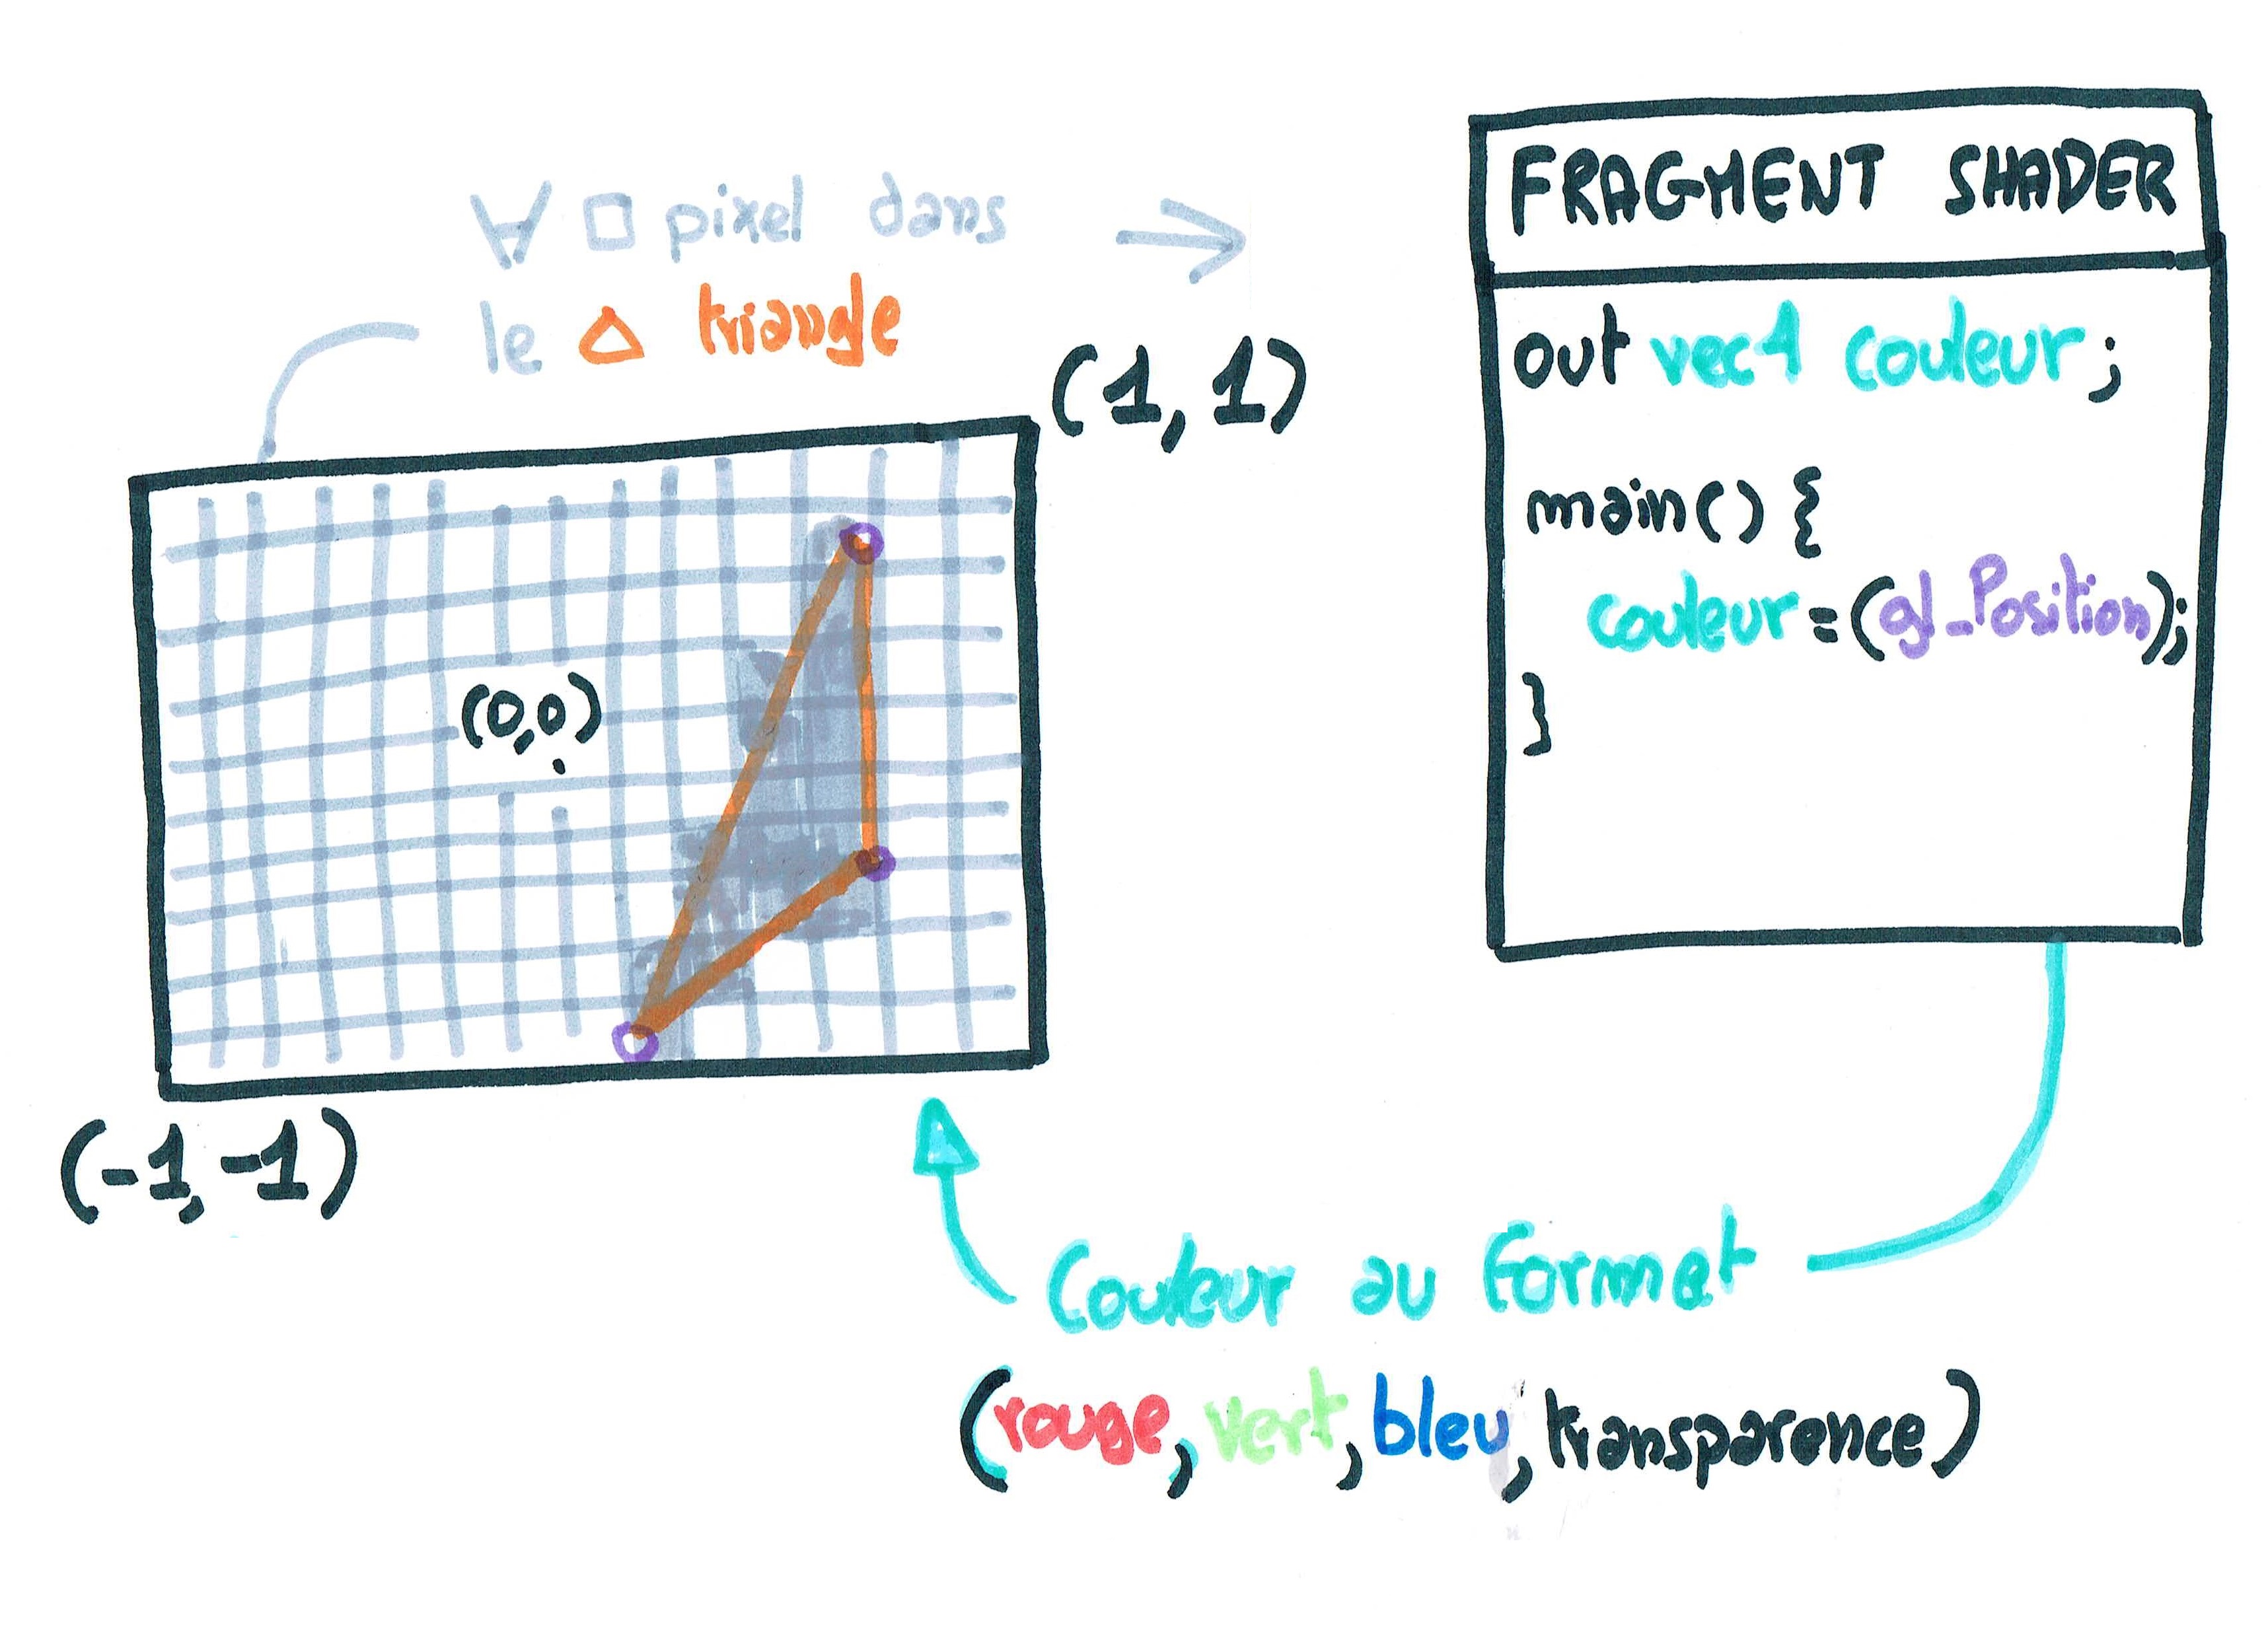 ∀ □ pixel dans →
le △ triangle
(1, 1)
(0,0)
(-1,-1)
FRAGMENT SHADER
out vec4 couleur;
main() {
couleur=(gl_Position);
}
Couleur au format
(rouge, vert, bleu, transparence)